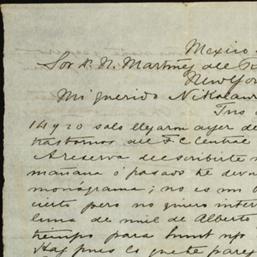 Mexico
Sor D. N. Martinez del
New York
Mi querido Nikolau
Tus
14 y 20 solo llegaron ayer de
trastornos del F C Central
A reserva de escribirte
mañana ó pasado te devu
monograma; no es mi
cierto pero no quiero inter
luna de miel de Alberto
tiempo para
pues lo que te parez